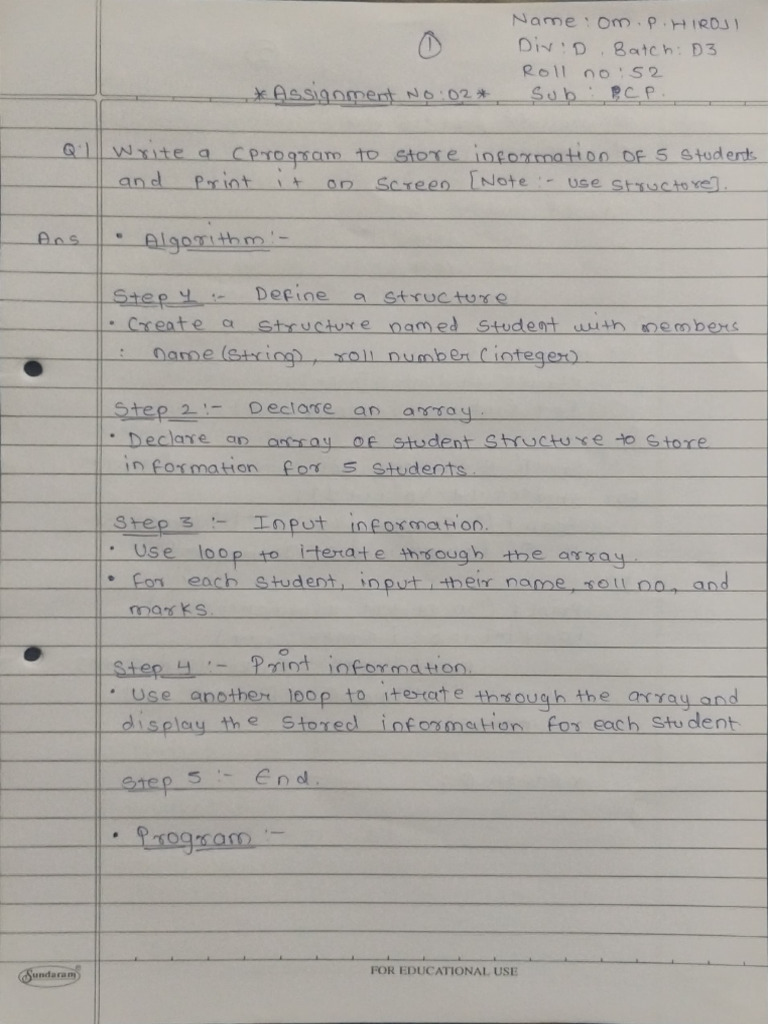 Name: Om.P.HIROJI
①
Div: D. Batch: D3
Roll no: 52
*Assignment No:02*
Sub: PCP.
Q.1 Write a C program to store information of 5 students
and print it on screen [Note :- use structore].
Ans • Algorithm:-
Step 1 :- Define a structure
• Create a structure named student with members
: name (string), roll number (integer)
Step 2 :- Declare an array.
• Declare an array of student structure to store
information for 5 students.
Step 3 :- Input information.
• Use loop to iterate through the array.
• For each student, input, their name, roll no, and
marks.
Step 4 :- Print information.
• Use another loop to iterate through the array and
display the stored information for each student
Step 5 :- End.
• Program :-
Sundaram
FOR EDUCATIONAL USE